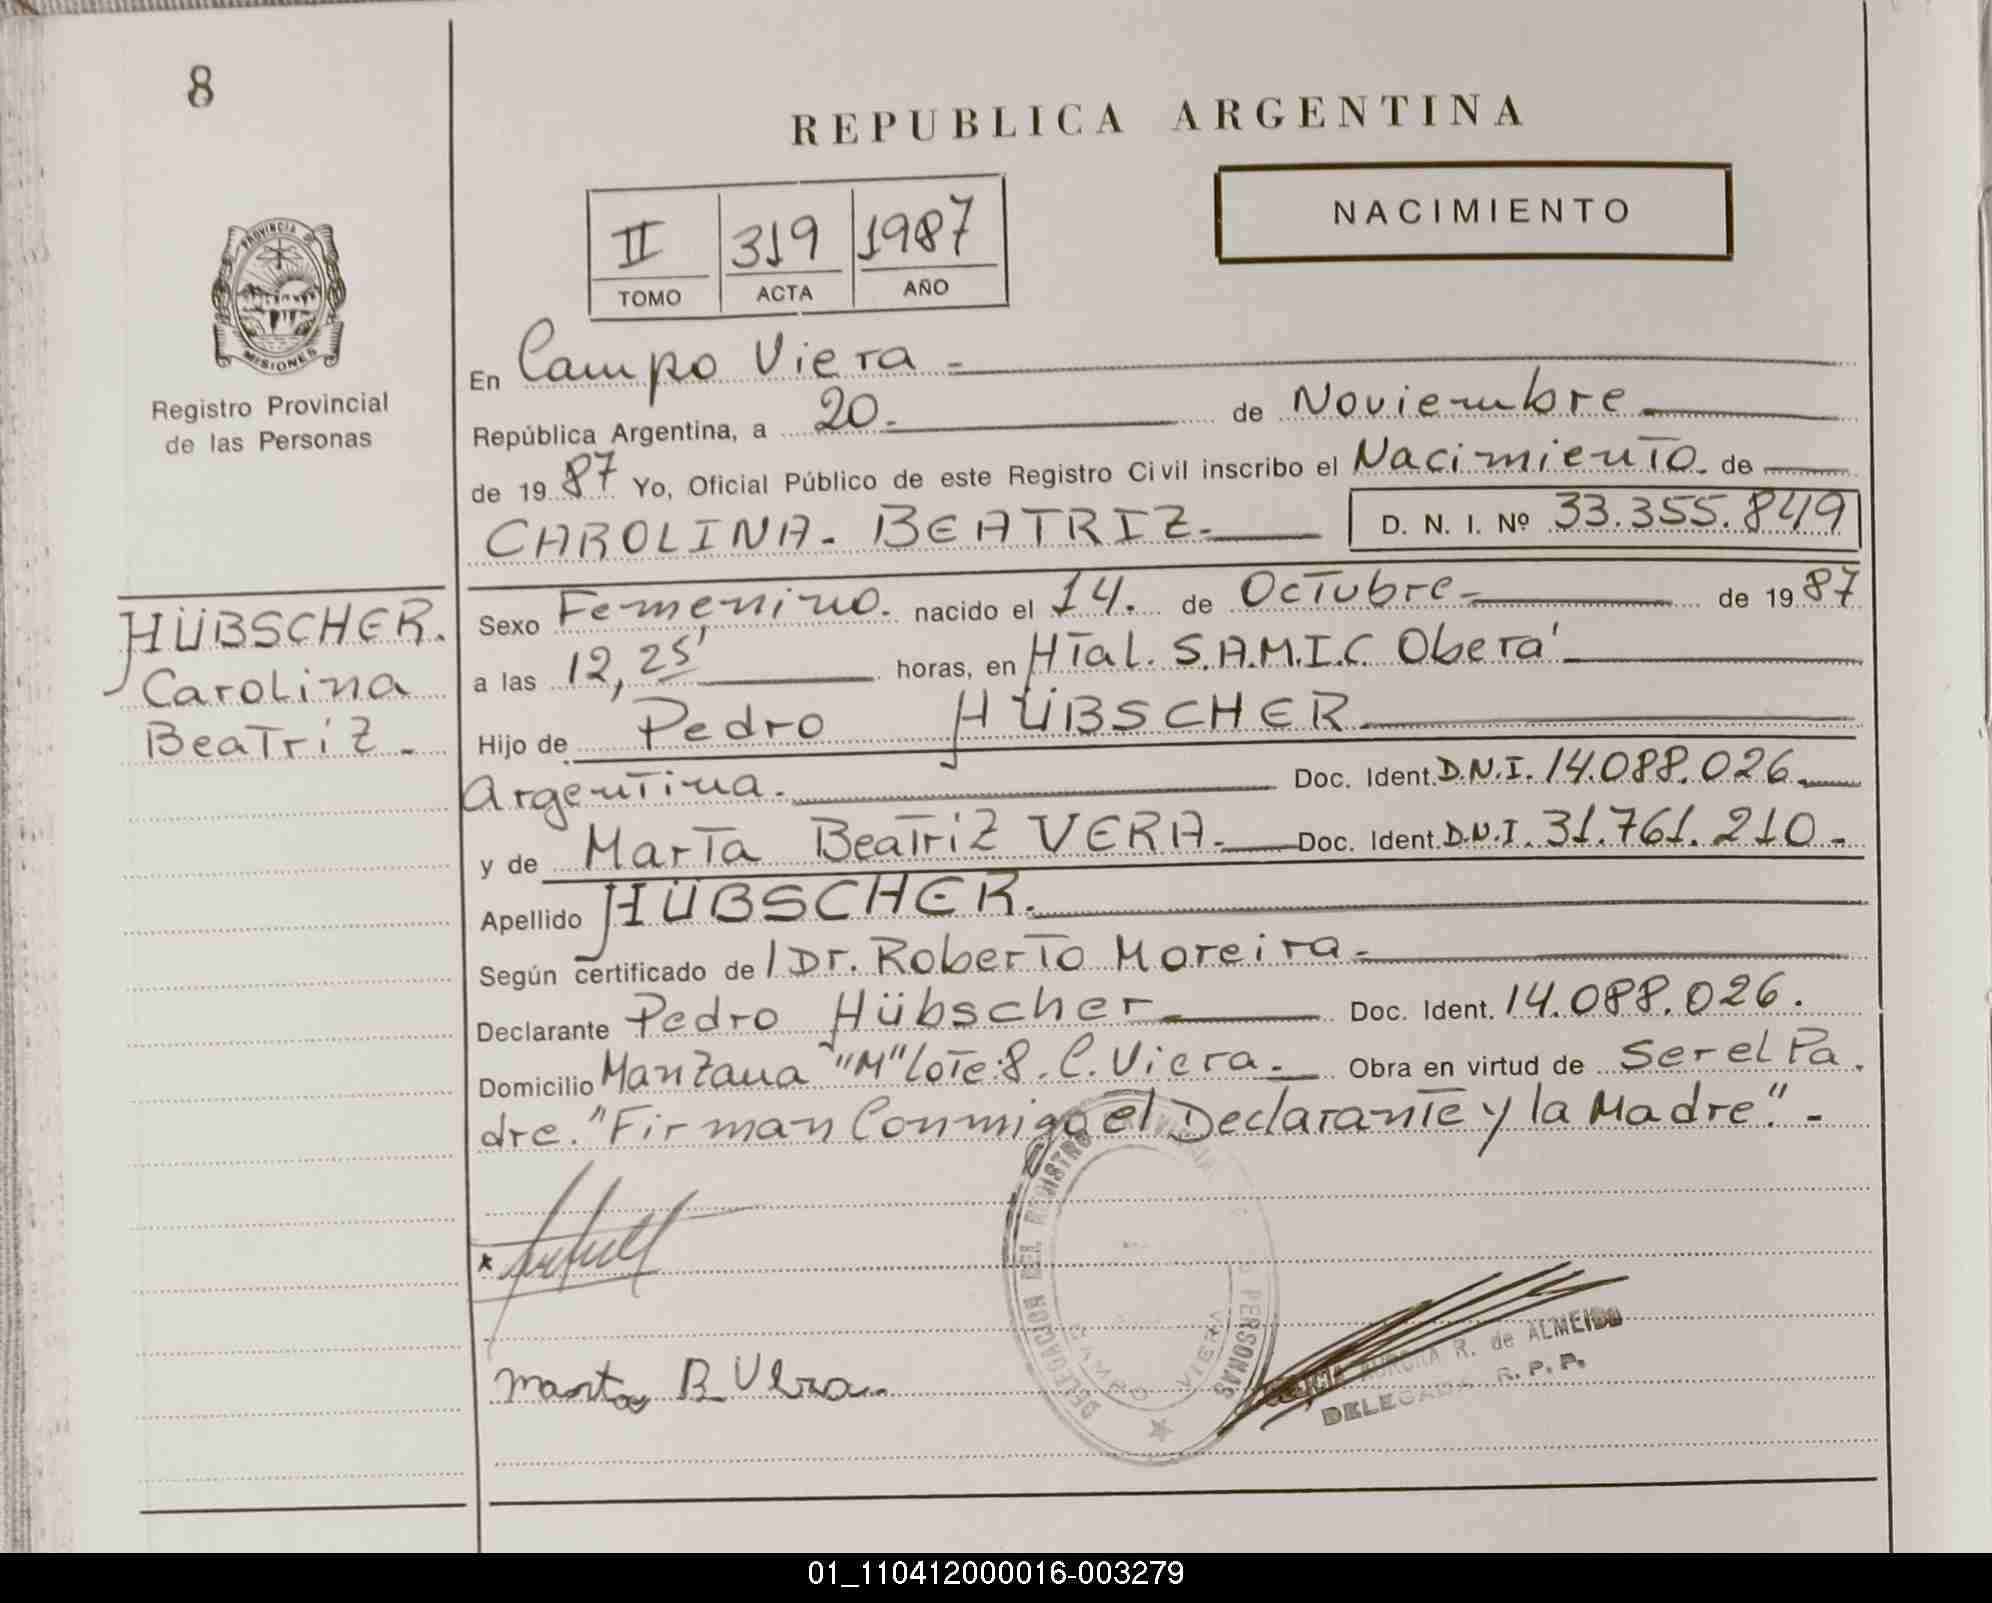 8
REPUBLICA ARGENTINA
NACIMIENTO
II 319 1987
TOMO ACTA AÑO
PROVINCIA DE
MISIONES
Registro Provincial
de las Personas
En Campo Viera -
República Argentina, a 20. de Noviembre
de 1987 Yo, Oficial Público de este Registro Civil inscribo el Nacimiento. de
CAROLINA. BEATRIZ. D. N. I. Nº 33.355.849
HÜBSCHER.
Carolina
Beatriz -
Sexo Femenino. nacido el 14. de Octubre de 1987
a las 12,25' horas, en Htal. S.A.M.I.C. Oberá
Hijo de Pedro HÜBSCHER
Argentina. Doc. Ident. D.N.I. 14.088.026
y de Marta Beatriz VERA. Doc. Ident. D.N.I. 31.761.210.-
Apellido HÜBSCHER.
Según certificado de / Dr. Roberto Moreira
Declarante Pedro Hübscher Doc. Ident. 14.088.026.
Domicilio Manzana "M" lote:8. C. Viera. Obra en virtud de ser el Pa
dre. "Firman Conmigo el Declarante y la Madre". -
DELEGACION DEL REGISTRO PERSONAS
CAMPO VIERA
x
Marta B Vera.
AURORA R. de ALMEIDA
DELEGADA R. P. P.
01_110412000016-003279